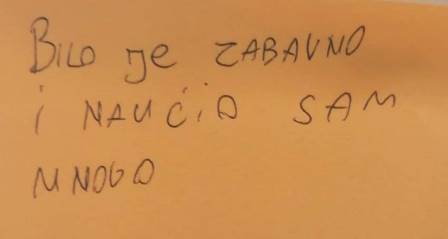 BILO JE ZABAVNO
i NAUČiO SAM
MNOGO